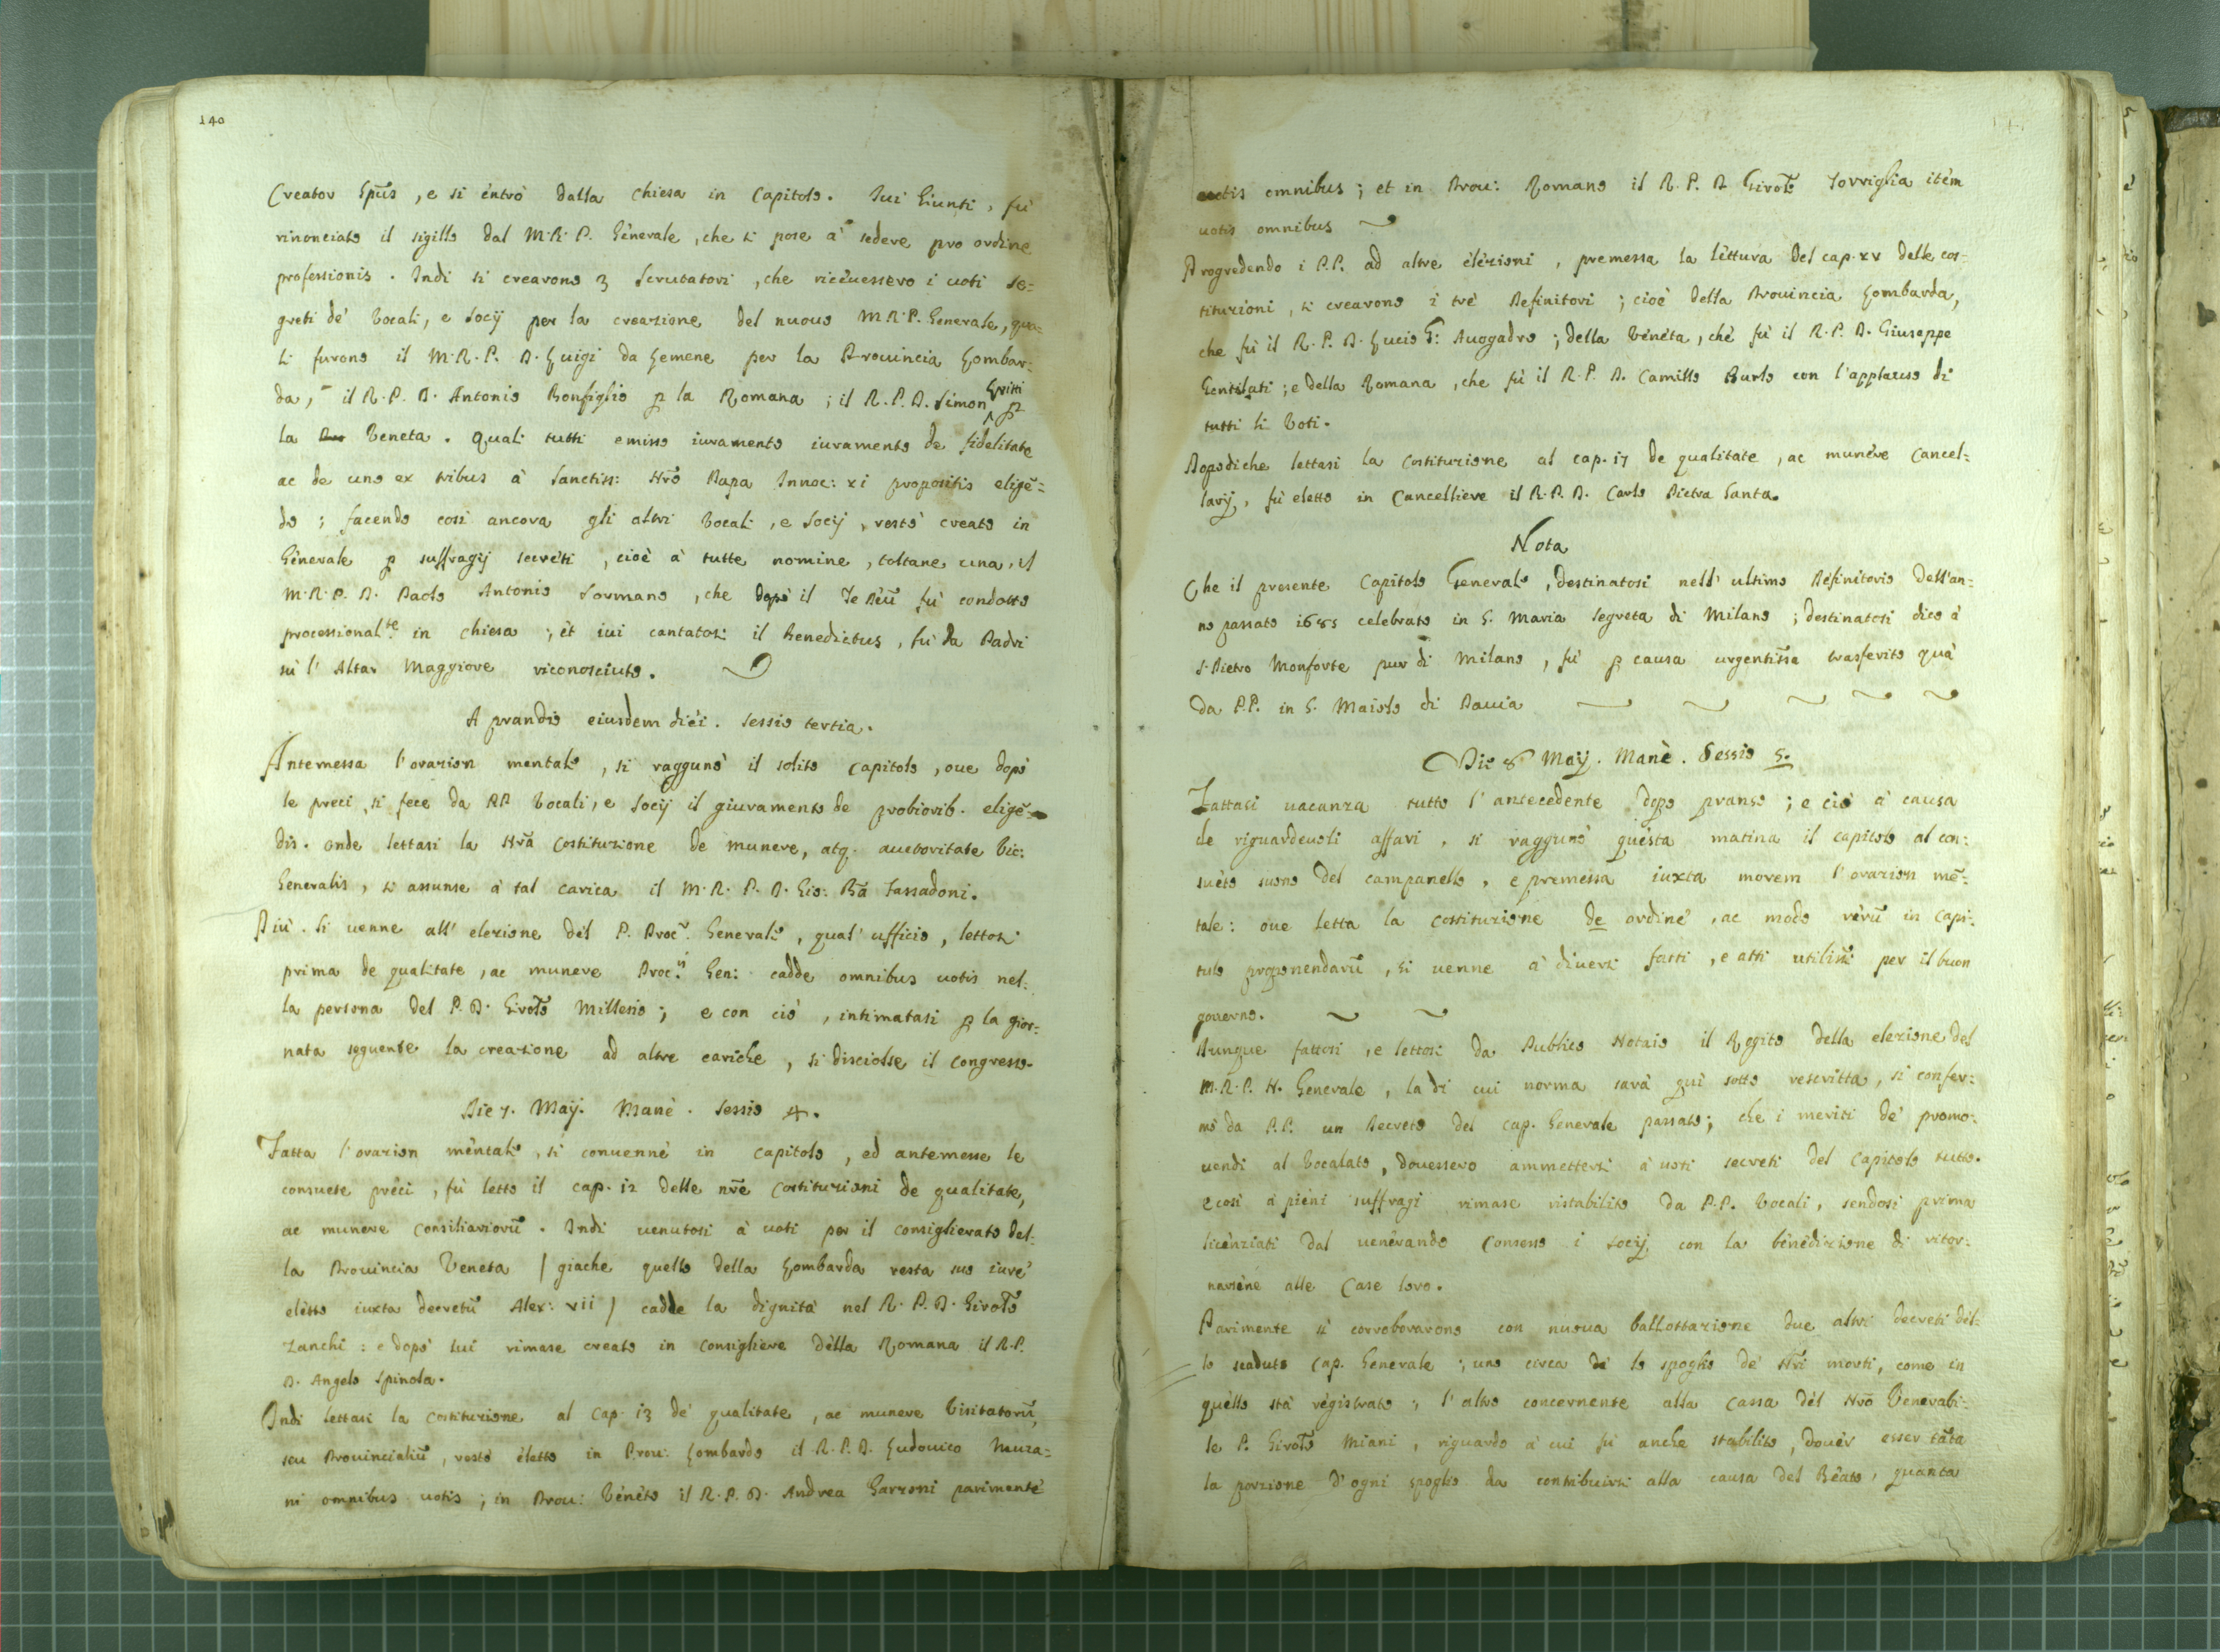 140
Creator Spūs, e si entrò dalla chiesa in Capitolo. Iui Giunti, fù
rinonciato il sigillo dal M.R.P. Generale, che si pose à sedere pro ordine
professionis. Indi si crearono 3 Scrutatori, che riceuessero i uoti se=
greti de' Vocali, e Socij per la creazione del nuouo M.R.P. Generale, qua=
li furono il M.R.P. D. Luigi da Lemene per la Prouincia Lombar=
da, il R.P. D. Antonio Bonfiglio p la Romana; il R.P.D. Simon Griti p
la Veneta. Quali tutti emisso iuramento iuramento de fidelitate
ac de uno ex tribus à Sanctiss: Nr̄o Papa Innoc: xi propositis eligē=
do; facendo così ancora gli altri Vocali, e Socij, restò creato in
Generale p suffragij secreti, cioè à tutte nomine, toltane una, il
M.R.P. D. Paolo Antonio Sormano, che dopò il Te Deū fù condotto
processional.te in chiesa; et iui cantatosi il Benedictus, fù da Padri
sù l' Altar Maggiore riconosciuto.
A prandio eiusdem diei. Sessio tertia.
Antemessa l'orazion mentale, si ragguno' il solito Capitolo, oue dopò
le preci si fece da PP. Vocali, e Socij il giuramento de probiorib. eligē=
dis. onde lettasi la Nrā Costituzione de munere, atq. auctoritate Vic:
Generalis, si assunse à tal carica il M.R.P.D. Gio: Bā Tassadoni.
Più. Si uenne all' elezione del P. Procr. Generale, qual' ufficio, lettosi
prima de qualitate, ac munere Proc.ris Gen: cadde omnibus uotis nel=
la persona del P.D. Girolō Millesio; e con ciò, intimatasi p la gior=
nata seguente la creazione ad altre cariche, si disciolse il congresso.
Die 7. Maij. Manè. Sessio 4.
Fatta l'orazion mentale, si conuenne in Capitolo, ed antemesse le
consuete preci, fù letto il cap. 12 delle nr̄e Costituzioni de qualitate,
ac munere Consiliariorū. Indi uenutosi à uoti per il consiglierato del=
la Prouincia Veneta / giache quello della Lombarda resta suo iure
eletto iuxta decretū Alex: vii / cadde la dignità nel R.P.D. Girolō
Zanchi: e dopò lui rimase creato in Consigliere della Romana il R.P.
D. Angelo Spinola.
Indi lettasi la Costituzione al Cap. 13 de qualitate, ac munere Visitatorū,
seu Prouincialiū, restò eletto in Prou: Lombardo il R.P.D. Ludouico Mura=
ni omnibus uotis; in Prou: Veneto il R.P.D. Andrea Garzoni parimente
uotis omnibus; et in Prou: Romano il R.P.D Girolō Torriglia item
uotis omnibus
Progredendo i P.P. ad altre elezioni, premessa la lettura del cap. xv delle cos=
tituzioni, si crearono i trè Definitori; cioè della Prouincia Lombarda,
che fù il R.P.D. Lucio G: Auogadro; della Veneta, che fù il R.P.D. Giuseppe
Gentilati; e della Romana, che fù il R.P.D. Camillo Burlo con l'applauso di
tutti li Voti.
Dopodiche lettasi la Costituzione al cap. 17 de qualitate, ac munere Cancel=
larij, fù eletto in Cancelliere il R.P.D. Carlo Pietra Santa.
Nota
Che il presente Capitolo Generale, destinatosi nell' ultimo Definitorio dell'an=
no passato 1685 celebrato in S. Maria Segreta di Milano; destinatosi dico à
S. Pietro Monforte pur di Milano, fù p causa urgentissa trasferito quà
da P.P. in S. Maiolo di Pauia
Die 8 Maij. Manè. Sessio 5.
Fattasi uacanza tutto l'antecedente dopo pranso; e ciò à causa
de riguardeuoli affari, si raggunò questa matina il capitolo al con=
sueto suono del campanello, e premessa iuxta morem l'orazion mē=
tale: oue letta la costituzione de ordine, ac modo rerū in Capi=
tulo proponendarū, si uenne à diuersi fatti, e atti utilissi per il buon
gouerno.
Dunque fattosi, e lettosi da Publico Notaio il Rogito della elezione del
M.R.P. N. Generale, la di cui norma sarà quì sotto rescritta, si confer=
mò da P.P. un Decreto del cap. Generale passato; che i meriti de' promo=
uendi al Vocalato, douessero ammettersi à uoti secreti del Capitolo tutto.
e così a pieni suffragi rimase ristabilito da P.P. Vocali, sendosi prima
licenziati dal uenerando Consesso i Socij con la benedizione di ritor=
narsene alle Case loro.
Parimente si corroborarono con nuoua ballottazione due altri decreti del=
lo scaduto Cap. Generale; uno circa lo spoglio de' Nri morti, come in
quello stà registrato; l'altro concernente alla Cassa del Nrō Venerabi=
le P. Girolō Miani, riguardo à cui fù anche stabilito, douer esser tāta
la porzione d'ogni spoglio da contribuirsi alla causa del Beato, quanta